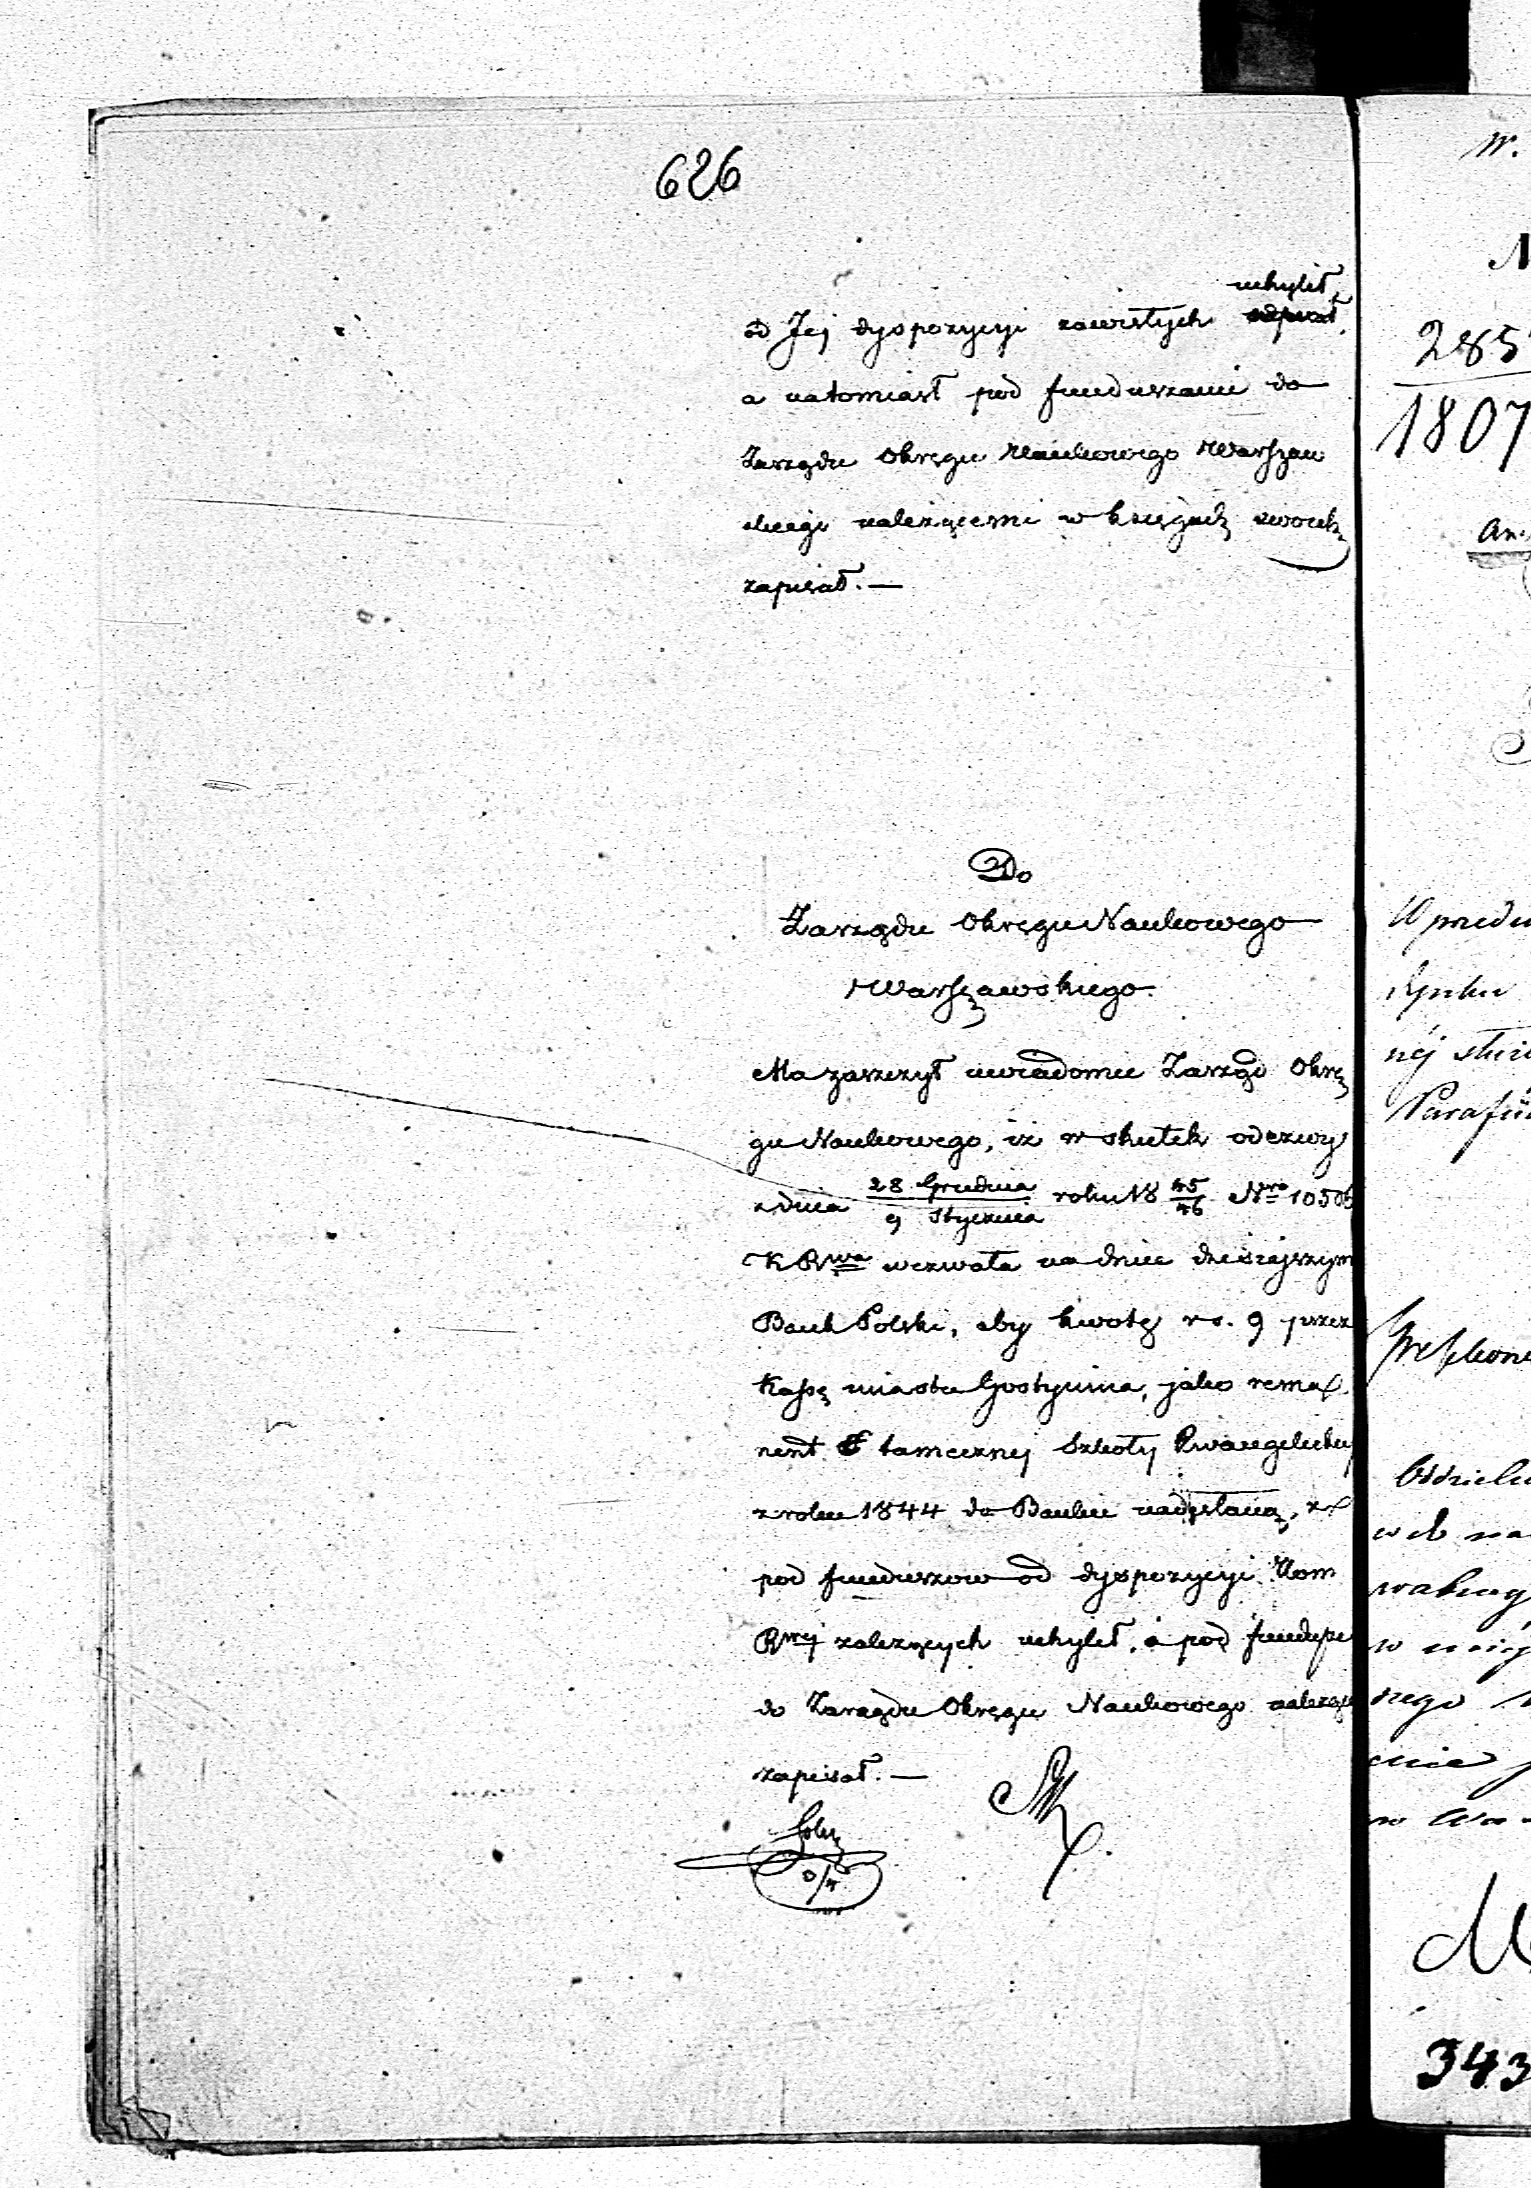 626
uchylił,
od Jej dyspozycyi zawisłych odpisał,
a natomiast pod funduszami do
Zarządu Okręgu Naukowego Warszaw
skiego należącemi w księgach swoich
zapisał. —
Do
Zarządu Okręgu Naukowego
Warszawskiego.
Ma zaszczyt uwiadomić Zarząd Okrę
gu Naukowego, iż w skutek odezwy
z dnia 28 Grudnia / 9 Stycznia roku 18 45/46 Nro 10506
K R wa wezwała na dniu dzisiejszym
Bank Polski, aby kwotę rs. 9 przez
Kassę miasta Gostynina, jako rema
nent tamecznej Szkoły Ewangelickiej
z roku 1844 do Banku nadesłaną, z
pod funduszów od dyspozycyi Kom
R wej zależących uchylił, a pod fundusze
do Zarządu Okręgu Naukowego należące
zapisał. —
W.
N
285
1807
nej
Parafii
w
nego
w
343